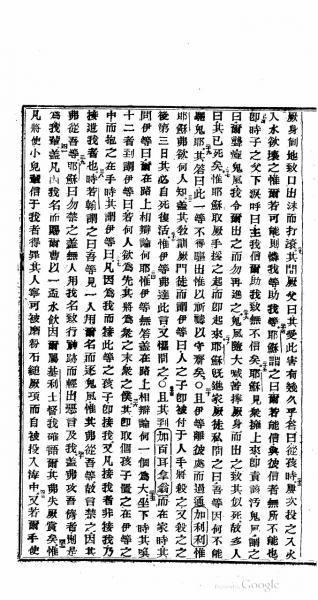 厥身倒地致口出沫而打滾其問厥父曰其受此害有幾久乎答曰從孩時屢次投之入火
入水欲壞之惟爾若可能則憐我等助我等耶穌謂之曰爾若能信與彼信者無所不能也
即時子之父下淚呼曰主我信爾助我致無不信矣耶穌見衆擁上來即責污鬼風謂之
曰爾聾瘂鬼風我令爾出之而勿再進之鬼風隨大喊苦擰厥身而出之致其以死故多人
曰其已死矣惟耶穌取厥手援之起而即起來耶穌既進家厥徒私問之曰吾等因何不能
驅鬼耶其答曰此一等不得驅出惟以祈聽以守齋矣○且伊等離彼處而過通加利利惟
耶穌弗欲何人知蓋其教訓厥門徒而謂伊等曰人之子即被付于人手將殺之又殺之之
後第三日其必自死復活惟伊等弗達此言又懼問之○且其到加百耳拿翁而在家時其
問伊等曰爾在路上相辯論何耶惟伊等無答蓋在路上相辯論何一個為大坐下時其
十二者到謂伊等曰若何人欲為先其將為衆之末衆之僕其即取個孩子置之在伊等之
中而抱之在手時其謂伊等曰凡因為我而接此等之孩子即接我又凡接我者非接我乃
接遣我者也時若翰謂之曰吾等見一人用爾名而逐鬼風惟其弗從吾等故吾禁之因其
弗從吾等耶穌曰勿禁之蓋無人用我名致行跡而輕出惡言及我蓋弗攻吾儕者則是
為我輩蓋凡因我名而賜爾曹以一盂水飲因爾屬基利士督我確語爾其弗失厥賞矣惟
凡將使小兒輩信于我者得罪其人寧可被磨粉石縋厥項而自被投入海中又若爾手使
Digitized by Google